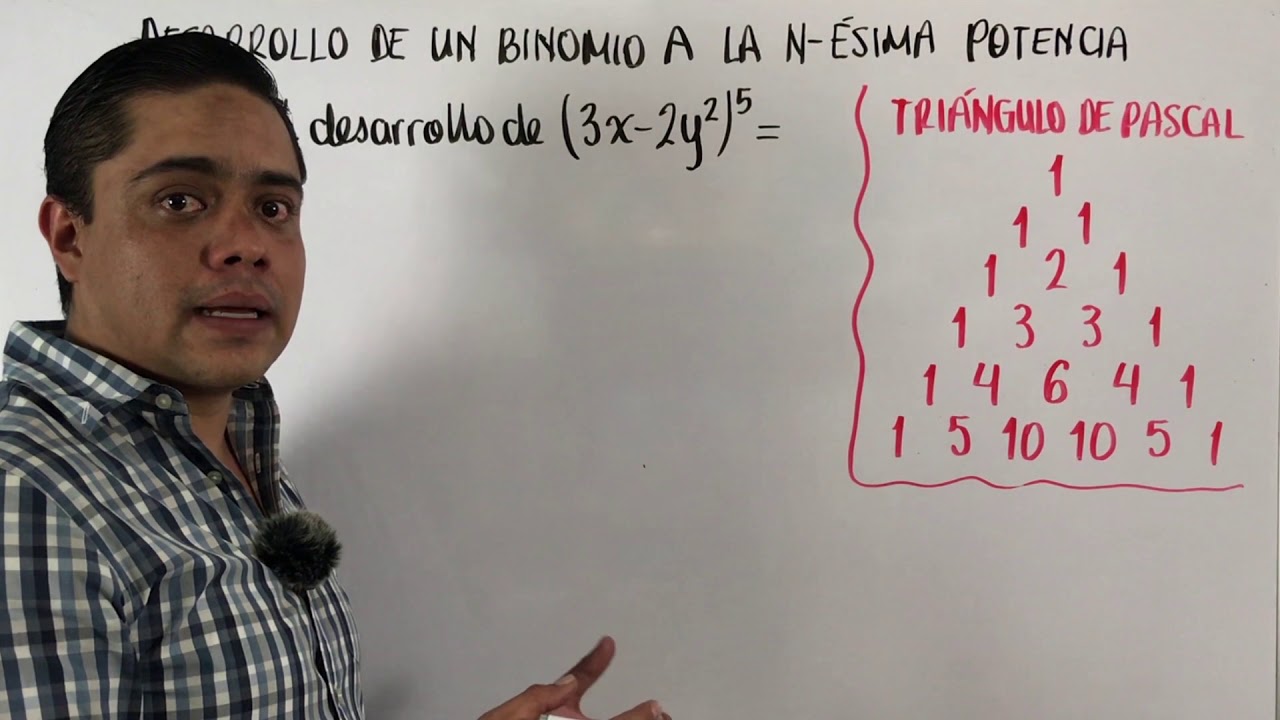 DESARROLLO DE UN BINOMIO A LA N-ÉSIMA POTENCIA
desarrollo de (3x-2y²)⁵=
TRIÁNGULO DE PASCAL
1
1 1
1 2 1
1 3 3 1
1 4 6 4 1
1 5 10 10 5 1